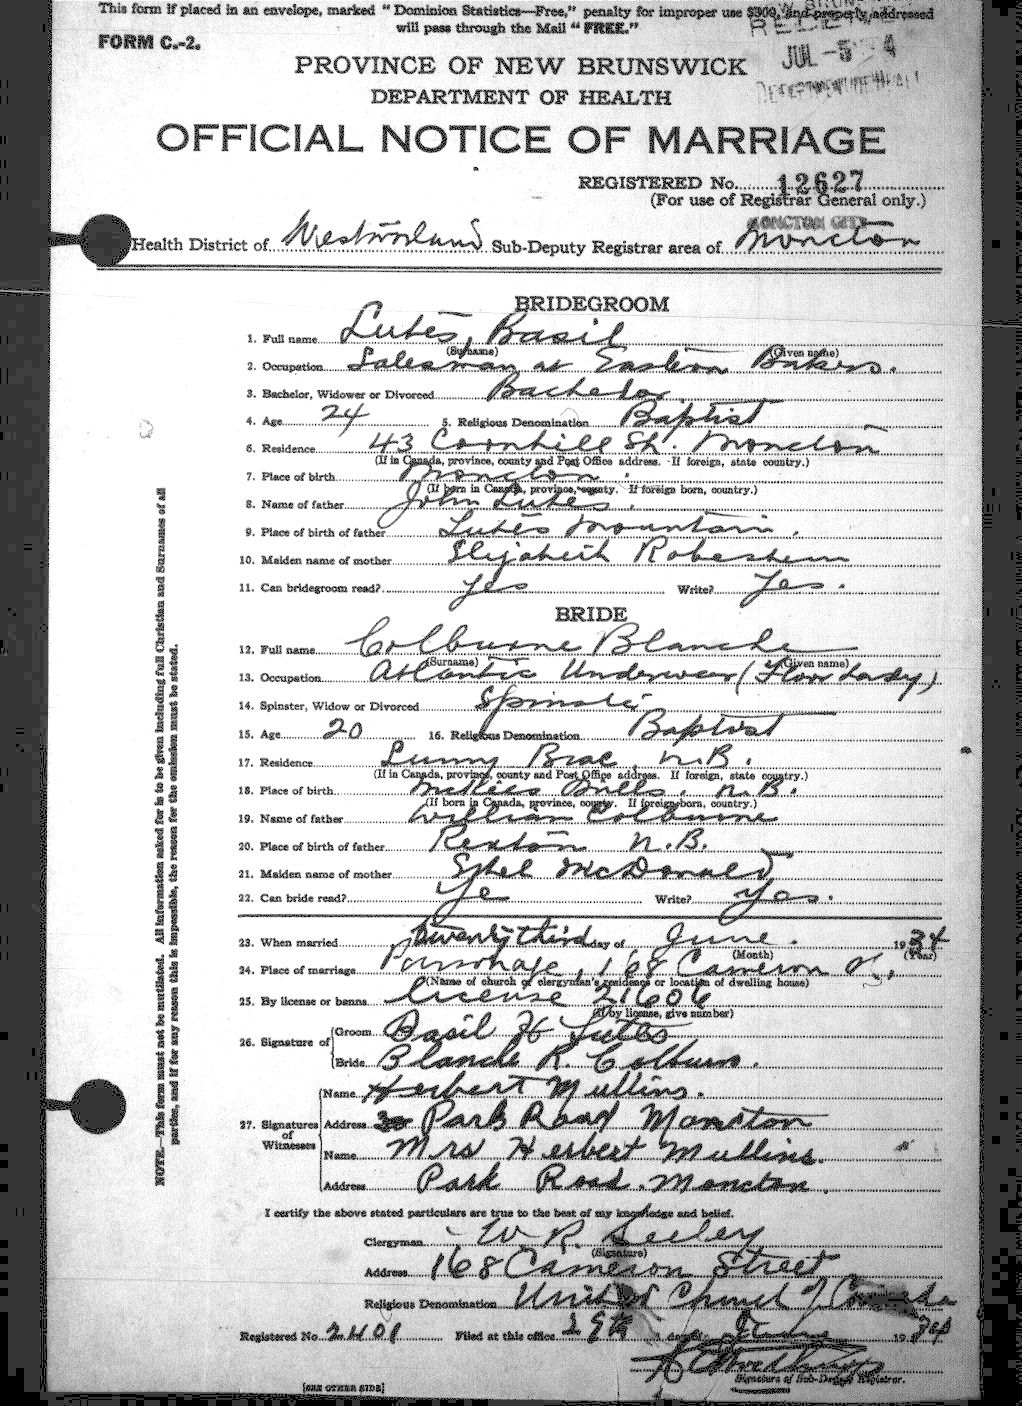 This form if placed in an envelope, marked "Dominion Statistics—Free," penalty for improper use $300, and properly addressed
will pass through the Mail "FREE."
FORM C.-2.
JUL -5
PROVINCE OF NEW BRUNSWICK
DEPARTMENT OF HEALTH
OFFICIAL NOTICE OF MARRIAGE
REGISTERED No. 12627
(For use of Registrar General only.)
MONCTON CITY
Health District of Westmorland Sub-Deputy Registrar area of Moncton
BRIDEGROOM
1. Full name Lutes, Basil
(Surname) (Given name)
2. Occupation Salesman at Eastern Bakers.
3. Bachelor, Widower or Divorced Bachelor
4. Age 24 5. Religious Denomination Baptist
6. Residence 43 Cornhill St. Moncton
(If in Canada, province, county and Post Office address. If foreign, state country.)
7. Place of birth Moncton.
(If born in Canada, province, county. If foreign born, country.)
8. Name of father John Lutes.
9. Place of birth of father Lutes Mountain.
10. Maiden name of mother
11. Can bridegroom read? yes Write? Yes.
BRIDE
12. Full name Colburne Blanche
(Surname) (Given name)
13. Occupation Atlantic Underwear (Floor Lady)
14. Spinster, Widow or Divorced Spinster
15. Age 20 16. Religious Denomination Baptist
17. Residence Lunny Brae, N.B.
(If in Canada, province, county and Post Office address. If foreign, state country.)
18. Place of birth McKees Mills. N.B.
(If born in Canada, province, county. If foreign born, country.)
19. Name of father William Colburne
20. Place of birth of father Rexton N.B.
21. Maiden name of mother Ethel McDonald
22. Can bride read? Ye Write? Yes.
23. When married Twenty third day of June. 1934
(Month) (Year)
24. Place of marriage Parsonage, 168 Cameron St.,
(Name of church or clergyman's residence or location of dwelling house)
25. By license or banns License 21606
(If by license, give number)
26. Signature of
Groom Basil H Lutes
Bride Blanche R. Colburn.
27. Signatures of Witnesses
Name Herbert Mullins.
Address Park Road Moncton
Name Mrs Herbert Mullins.
Address Park Road. Moncton.
I certify the above stated particulars are true to the best of my knowledge and belief.
Clergyman W. R. Seeley
(Signature)
Address 168 Cameron Street
Religious Denomination United Church of Canada
Registered No. 2401 Filed at this office 29th day of June 19
Signature of Sub-Deputy Registrar.
[SEE OTHER SIDE]
NOTE.—This form must not be mutilated. All information asked for is to be given including full Christian and Surnames of all
parties, and if for any reason this is impossible, the reason for the omission must be stated.